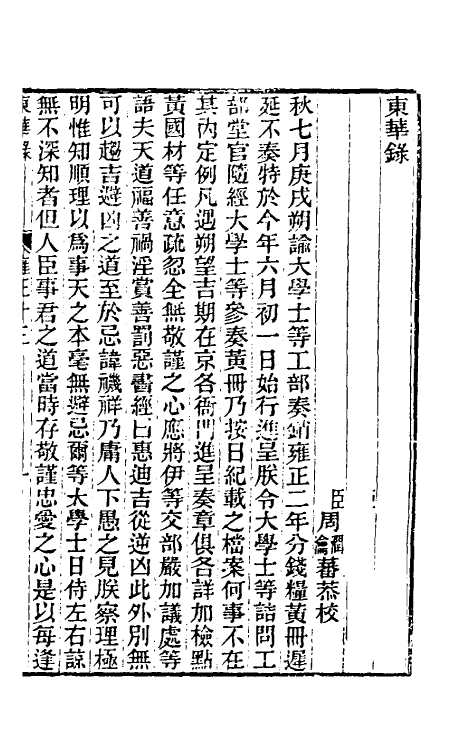 東華錄
臣周潤蕃 瀹蕃恭校
秋七月庚戌朔諭大學士等工部奏銷雍正二年分錢糧黃冊遲
延不奏特於今年六月初一日始行進呈朕令大學士等詰問工
部堂官隨經大學士等參奏黃冊乃按日紀載之檔案何事不在
其內定例凡遇朔望吉期在京各衙門進呈奏章俱各詳加檢點
黃國材等任意疏忽全無敬謹之心應將伊等交部嚴加議處等
語夫天道福善禍淫賞善罰惡書經曰惠迪吉從逆凶此外別無
可以趨吉避凶之道至於忌諱禨祥乃庸人下愚之見朕察理極
明惟知順理以爲事天之本毫無避忌爾等大學士日侍左右諒
無不深知者但人臣事君之道當時存敬謹忠愛之心是以每逢
東華錄 雍正十三